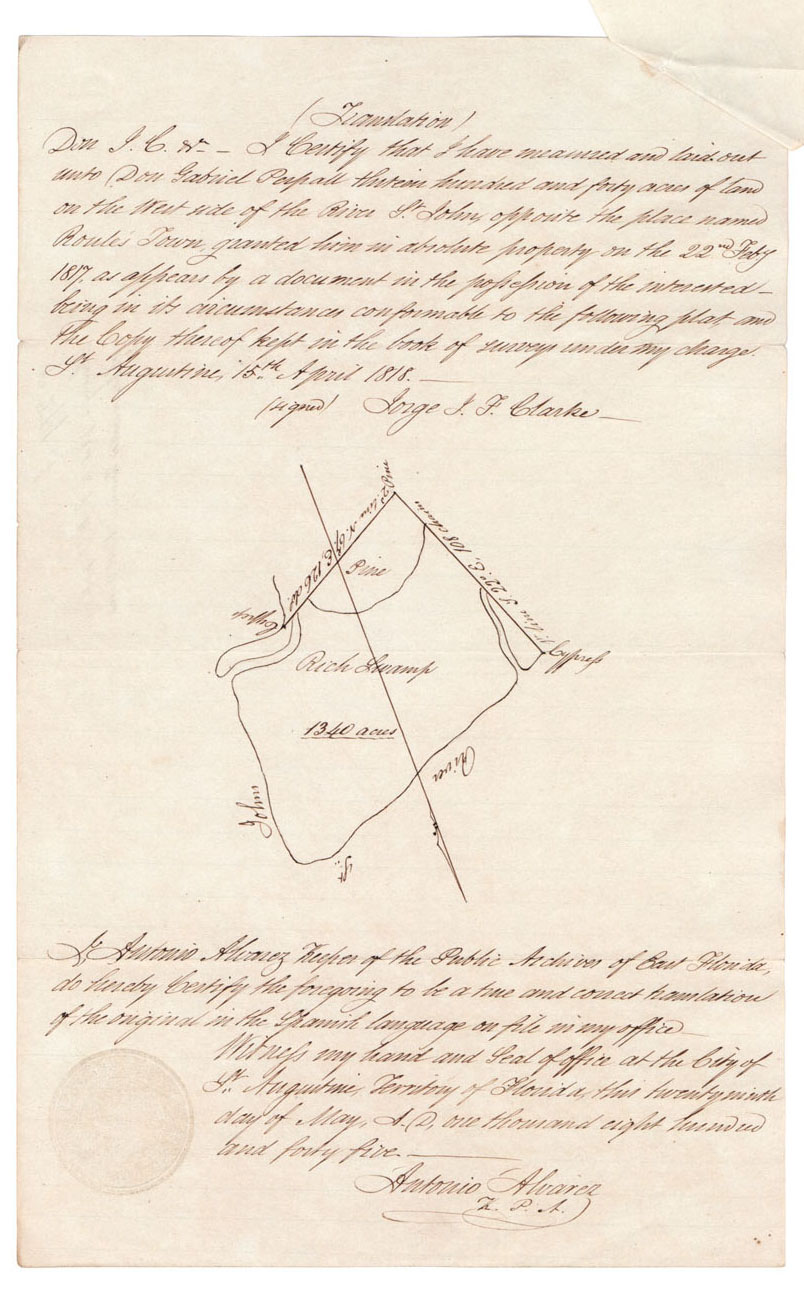 (Translation)
Don J. C. &c — I Certify that I have measured and laid out
unto Don Gabriel Perpall thirteen hundred and forty acres of land
on the West side of the River St. John, opposite the place named
Roule's Town, granted him in absolute property on the 22nd Feby
1817, as appears by a document in the possession of the interested —
being in its circumstances conformable to the following plat, and
the Copy thereof kept in the book of surveys under my charge.
St. Augustine, 15th April 1818. —
(signed) Jorge J. F. Clarke —
Pine
2d line N. E, 126 do.
1st line S 22° E, 108 chains
Pine
Cypress
Cypress
Rich Swamp
1340 acres
River
St.
John
I, Antonio Alvarez Keeper of the Public Archives of East Florida,
do hereby Certify the foregoing to be a true and correct translation
of the original in the Spanish language on file in my office —
Witness my hand and Seal of office at the City of
St. Augustine, Territory of Florida, this twenty ninth
day of May, A.D, one thousand eight hundred
and forty five. —
Antonio Alvarez
K. P. A.